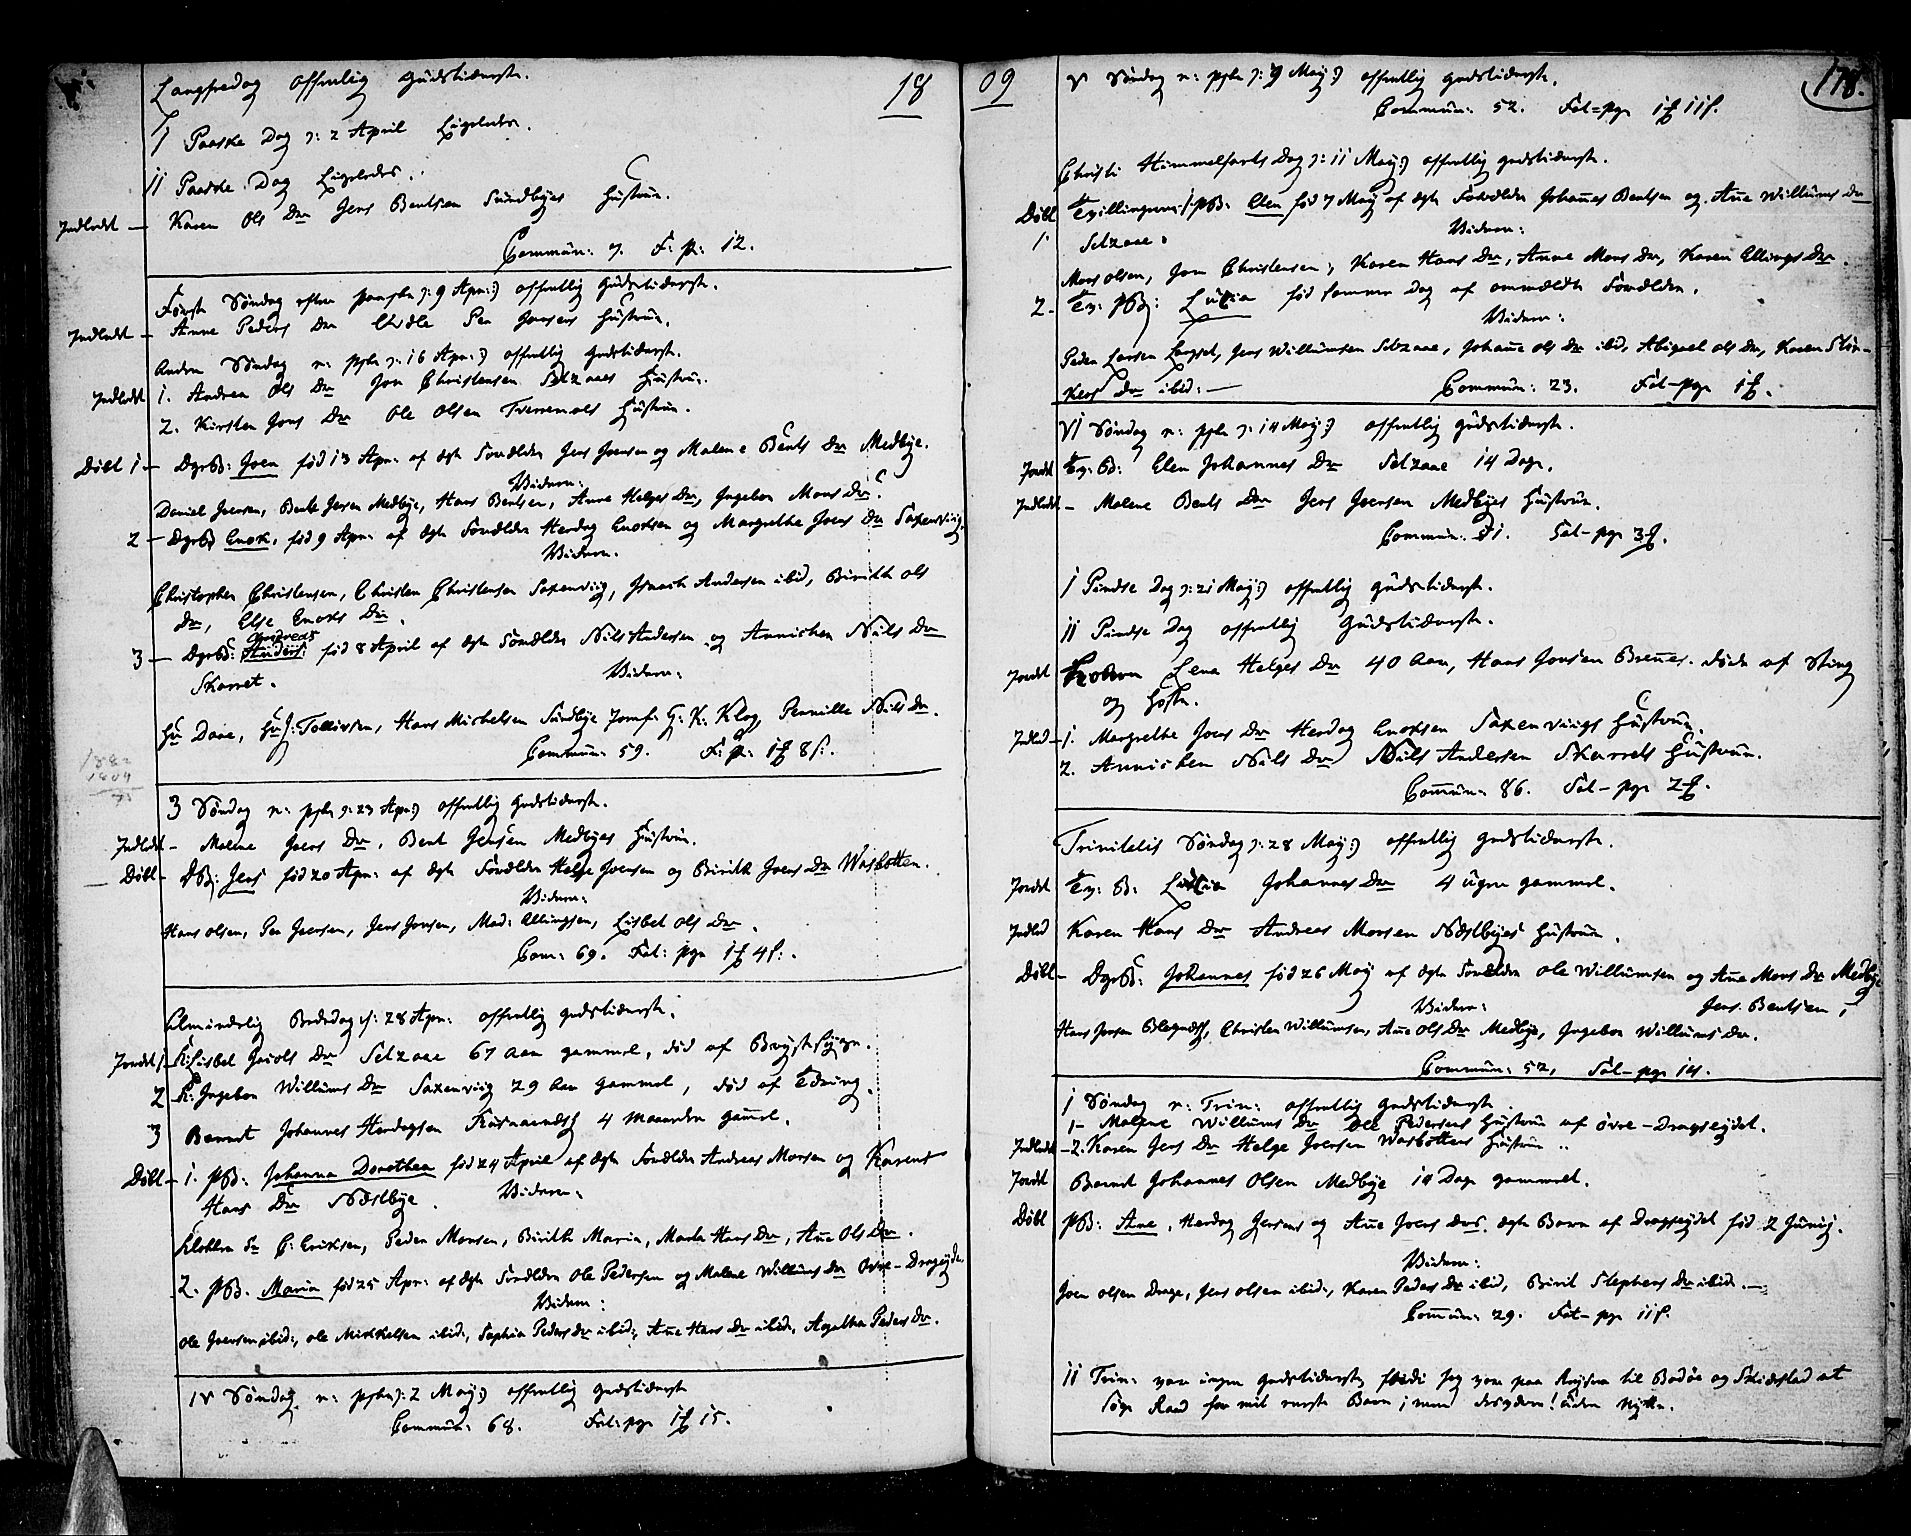 18
Langfredag offentlig Gudstieneste.
I Paaske Dag d: 2 April Ligeledes.
II Paaske Dag Ligeledes.
Indledt — Karen Ols Dr Jens Bentsen Sundbyes Hustrue.
Commun: 7. F: p: 12.
Første Søndag efter paaske d: 9 Apr:) offentlig Gudstieneste.
Indledt — Anne Peders Dr Per Joensens Hustrue.
Anden Søndag e: pske d: 16 Apr:) offentlig Gudstieneste.
Indledt 1. Andrea Ols Dr Jon Christensen Selzaaes Hustrue.
2. Kirsten Jons Dr Ole Olsen Hustrue.
Døbt 1 — DgrB: Joen fød 13 Apr: af ægte Forældre Jens Joensen og Malene Bents Dr Medbye.
Vidner:
Daniel Joensen, Bent Jensen Medbye, Hans Bentsen, Anne Helges Dr, Ingebor Mons Dr.
2 — DgrB Enok, fød 9 Apr: af ægte Forældre Herdag Enoksen og Margrethe Joens Dr Saxenviig
Vidner.
Christopher Christensen, Christen Christensen Saxenviig, Andersen ibid, Birith Ols
Dr, Else Enoks Dr.
Andreas
3 — DgrB: Anders: fød 8 April af ægte Forældre Nils Andersen og Annichen Nils Dr
Skarret. Vidner:
Hr Dave, Hr J: Tollivsen, Hans Michelsen Sundbye Jomf: G: K: Klog, Pernille Nils Dr.
Commun: 59. F: p: 1 8 s:
1882
1809
3 Søndag e: pske d: 23 Apr:) offentlig Gudstieneste.
Indledt — Malene Joens Dr, Bent Jensen Medbyes Hustrue.
Døbt — PB: Jens fød 20 Apr: af ægte Forældre Helge Joensen og Birith Joens Dr Wasbotten.
Vidner:
Hans Olsen, Per Joensen, Jens Jonsen, Mad: Ellingsen, Lisbet Ols Dr.
Com: 69. Fat: pge 1 4 s:
Almindelig Bededag d: 28 Apr: offentlig Gudstieneste.
Jordet 1. K: Lisbet Dr Selzaae 67 Aar gammel, død af Brystsyge.
2 K: Ingebor Willums Dr Saxenviig 29 Aar gammel, død af Tæring.
3 Bernt Johannes Herdagsen 4 Maaneder gaml.
Døbt — 1. PB: Johanna Dorothea fød 24 April af ægte Forældre Andreas Monsen og Karen
Hans Dr Næstbye. Vidner:
Klokker Sr C: Eriksen, Peder Monsen, Birith Maria, Marta Hans Dr, Ane Ols Dr.
2. PB. Maria fød 25 Apr: af ægte Forældre Ole Pedersen og Malene Willums Dr Øvre-Drageyde.
Vidner:
Ole Joensen ibid:, Ole Mikkelsen ibid, Sophia Peders Dr ibid:, Ane Hans Dr ibid, Agatha Peders Dr.
IV Søndag e: pske d: 2 May:) offentlig Gudstieneste
Commun: 68. Fat: pge 1 15.
09
178.
V Søndag e: pske d: 9 May:) offentlig Gudstieneste.
Commun: 52. Fat-pge 1 11 s.
Christi Himmelfarts Dag d: 11 May:) offentlig Gudstieneste.
Døbt Tvillingerne / PB: Elen fød 7 May af ægte Forældre Johannes Bentsen og Ane Willums Dr
1. Selzaae. Vidner:
Mons Olsen, Jon Christensen, Karen Hans Dr, Anne Mons Dr, Karen Ellings Dr.
2. Tv: PB: Lucia fød samme Dag af ommældte Forældre.
Vidner:
Peder Larsen Langset, Jens Willumsen Selzaae, Johane Ols Dr ibid, Abigael Ols Dr, Karen
Dr ibid: — Commun: 23. Fat-pge 1
VI Søndag e: pske d: 14 May:) offentlig Gudstieneste.
Jordet Tv: B: Elen Johannes Dr Selzaae 14 Dage.
Indledt — Malene Bents Dr Jens Joensen Medbyes Hustrue.
Commun: 81. Fat-pge 3
I Pindse Dag d: 21 May:) offentlig Gudstieneste.
II Pindse Dag offentlig Gudstieneste.
Jordet Konen Lena Helges Dr 40 Aar, Hans Jonsen Brennes. døde af Sting
og Hoste.
Indled — 1. Margrethe Joens Dr Herdag Enoksen Saxenviigs Hustrue.
2. Annichen Nils Dr Nils Andersen Skarrets Hustrue.
Comun: 86. Fat-pge 2
Trinitatis Søndag d: 28 May:) offentlig Gudstieneste.
Jordet Tv: B: Lucia Johannes Dr 4 Uger gammel.
Indled Karen Hans Dr Andreas Monsen Næstbyes Hustrue.
Døbt — DgrB: Johannes fød 26 May af ægte Forældre Ole Willumsen og Ane Mons Dr Medbye
Vidner: Jens Bentsen,
Hans Jonsen, Christen Willumsen, Ane Ols Dr Medbye, Ingebor Willums Dr.
Commun: 52, Fat-pge 14.
I Søndag e: Trin: offentlig Gudstieneste
1 — Malene Willums Dr Ole Pedersens Hustrue af Øvre-Drageydet.
Indledt — 2. Karen Jens Dr Helge Joensen Wasbottens Hustrue ..
Jordet Bernt Johannes Olsen Medbye 14 Dage gammel.
Døbt PB: Ane, Herdag Jensens og Ane Joens Drs. ægte Barn af Drageydet fød 2 Junij.
Vidner:
Joen Olsen Drage, Jens Olsen ibid:, Karen Peders Dr ibid, Birit Stephens Dr ibid. —
Comun: 29. Fat-pge 11 s.
II Trin: var ingen Gudstieneste fordi jeg var paa Reysen til Bodøe og at
søge Raad for mit eneste Barn; men desværre! uden Nytte.